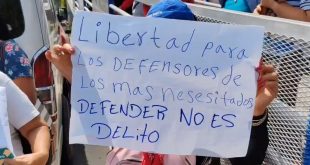 Libertad para
Los DEFENSORES de
Los mas nesesitados
DEFENDER NO ES
DELiTO